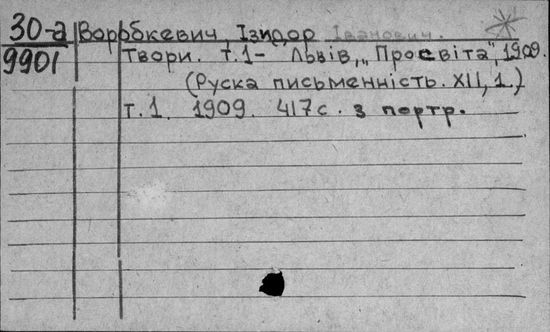 30-а Воробкевич, Ізидор Іванович.
9901 Твори. т.1- Львів, „Просвіта", 1909.
(Руска письменність. XII, 1.)
т.1. 1909. 417с. з портр.